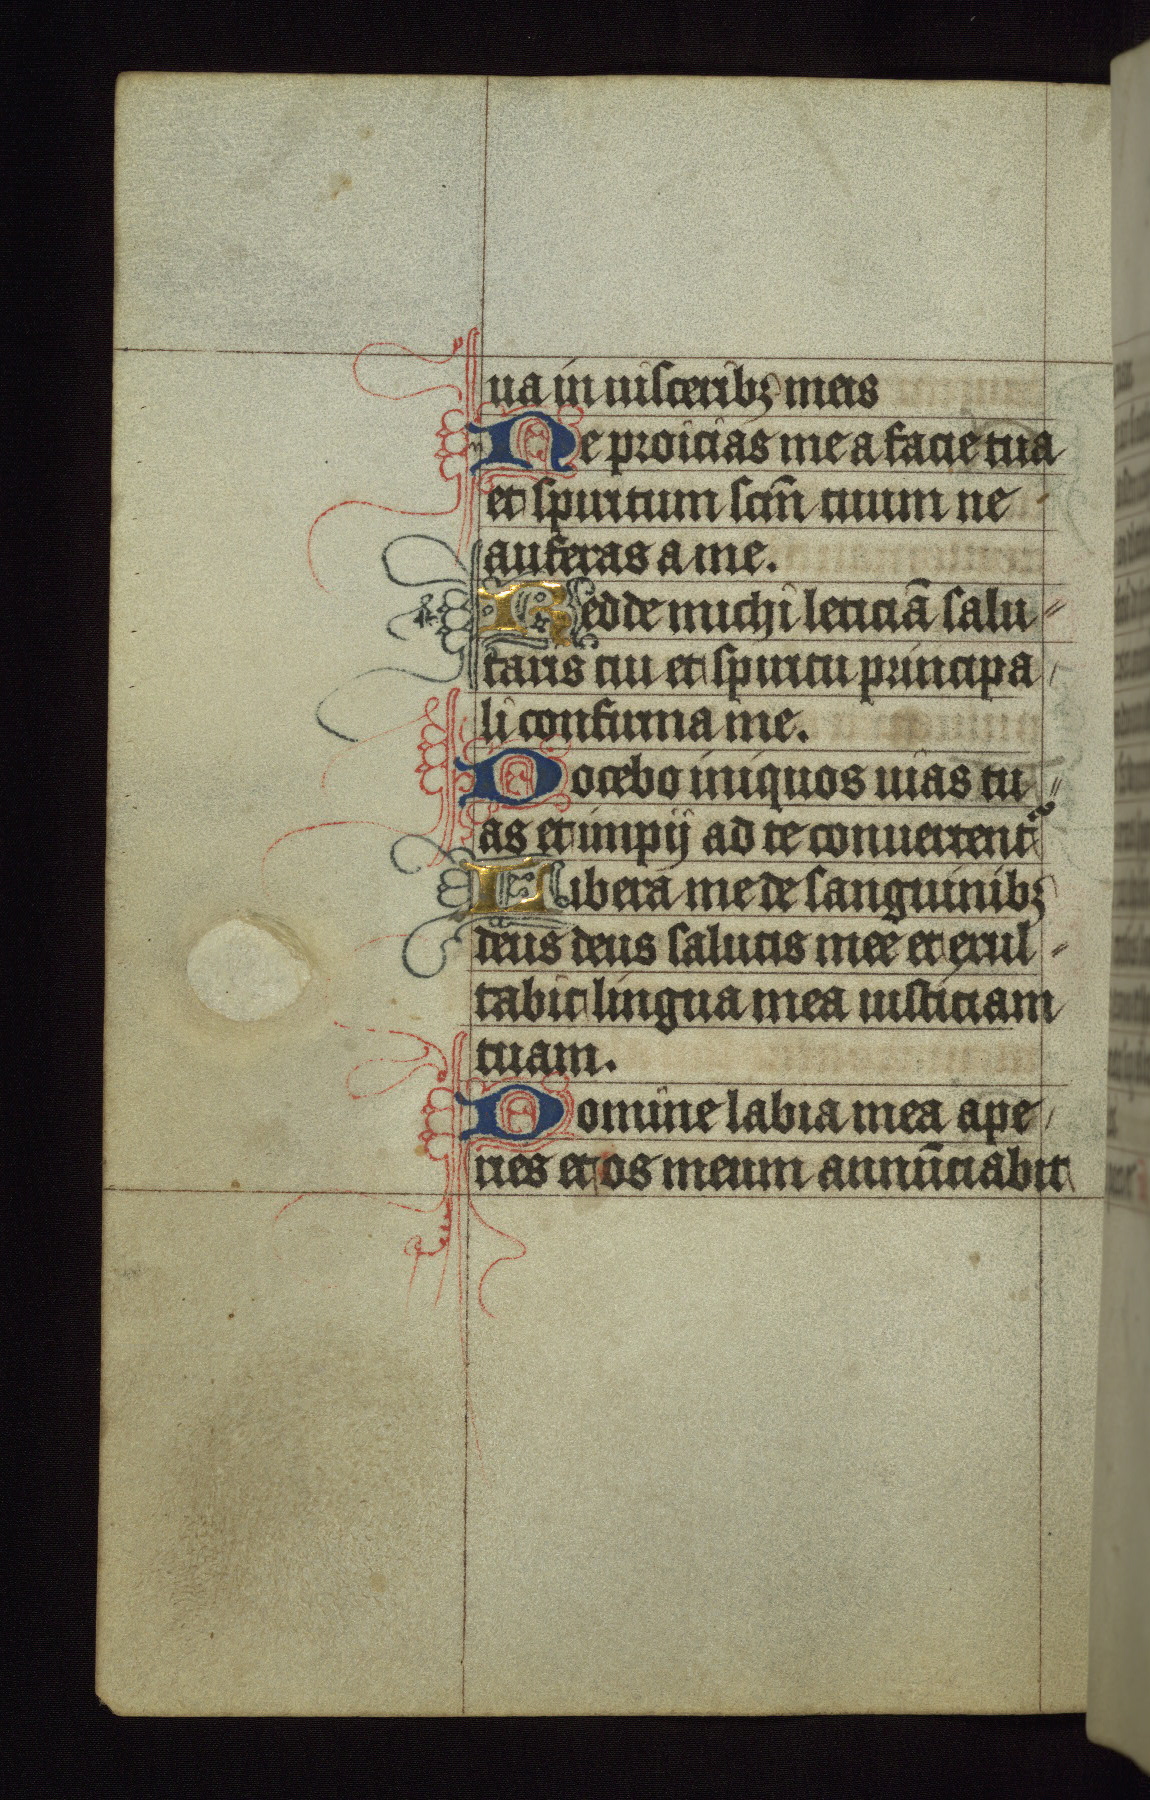 ua in uisceribꝫ meis
Ne proicias me a facie tua
et spiritum scm̄ tuum ne
auferas a me.
Redde michi leticiā salu〃
taris tui et spiritu principa/
li confirma me.
Docebo iniquos uias tu〃
as et impij ad te conuertent᷑
Libera me de sanguinibꝫ
deus deus salutis mee et exul〃
tabit lingua mea iusticiam
tuam.
Domine labia mea ape/
ries et os meum annūciabit